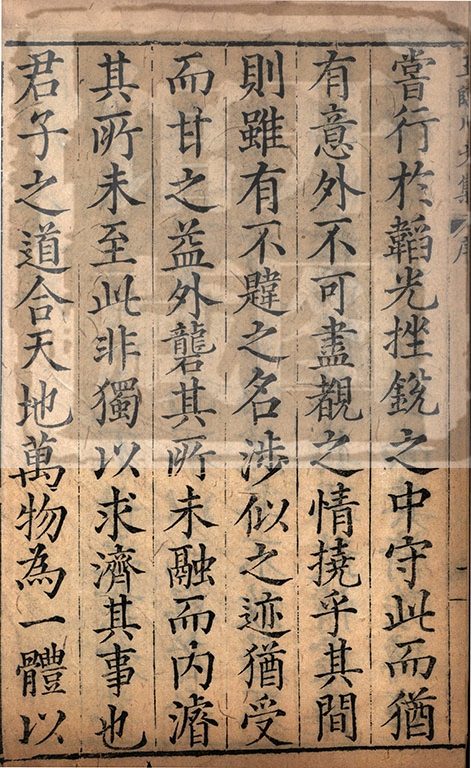 嘗行於韜光挫銳之中守此而猶
有意外不可盡覩之情撓乎其間
則雖有不韙之名涉似之迹猶受
而甘之益外礱其所未融而内濬
其所未至此非獨以求濟其事也
君子之道合天地萬物為一體以